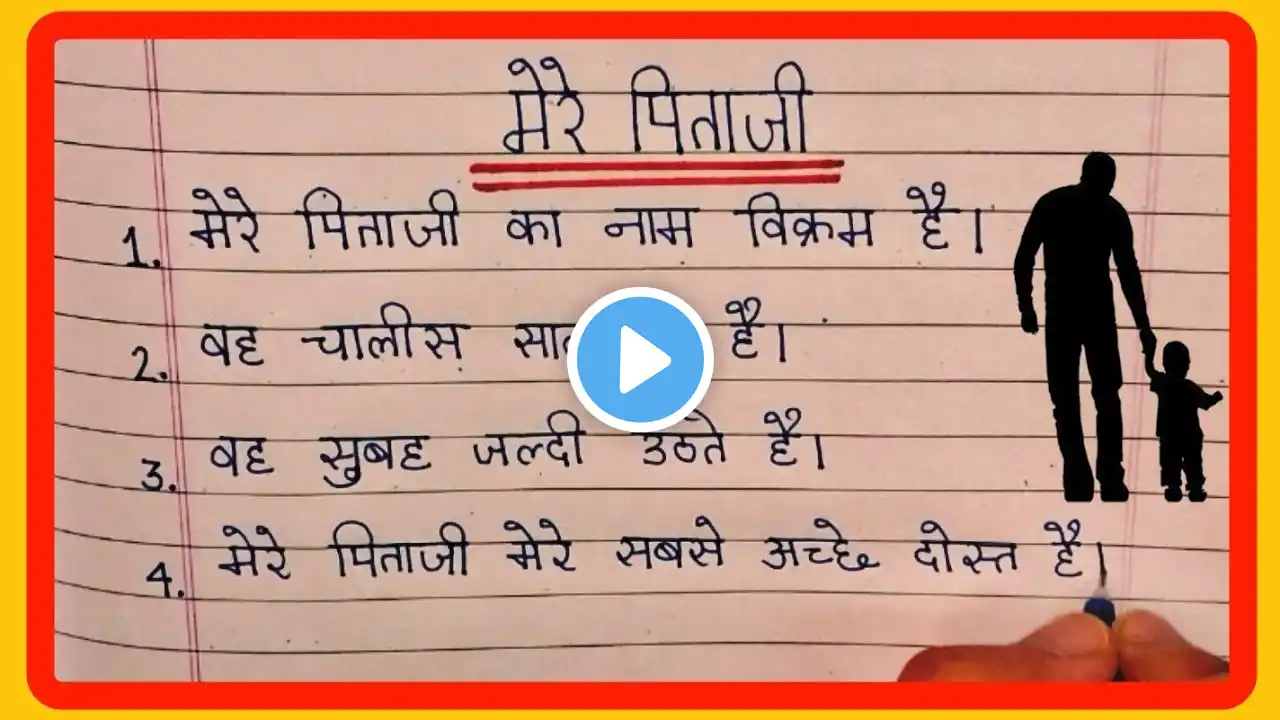 मेरे पिताजी
1. मेरे पिताजी का नाम विक्रम है।
2. वह चालीस है।
3. वह सुबह जल्दी उठते है।
4. मेरे पिताजी मेरे सबसे अच्छे दोस्त है।